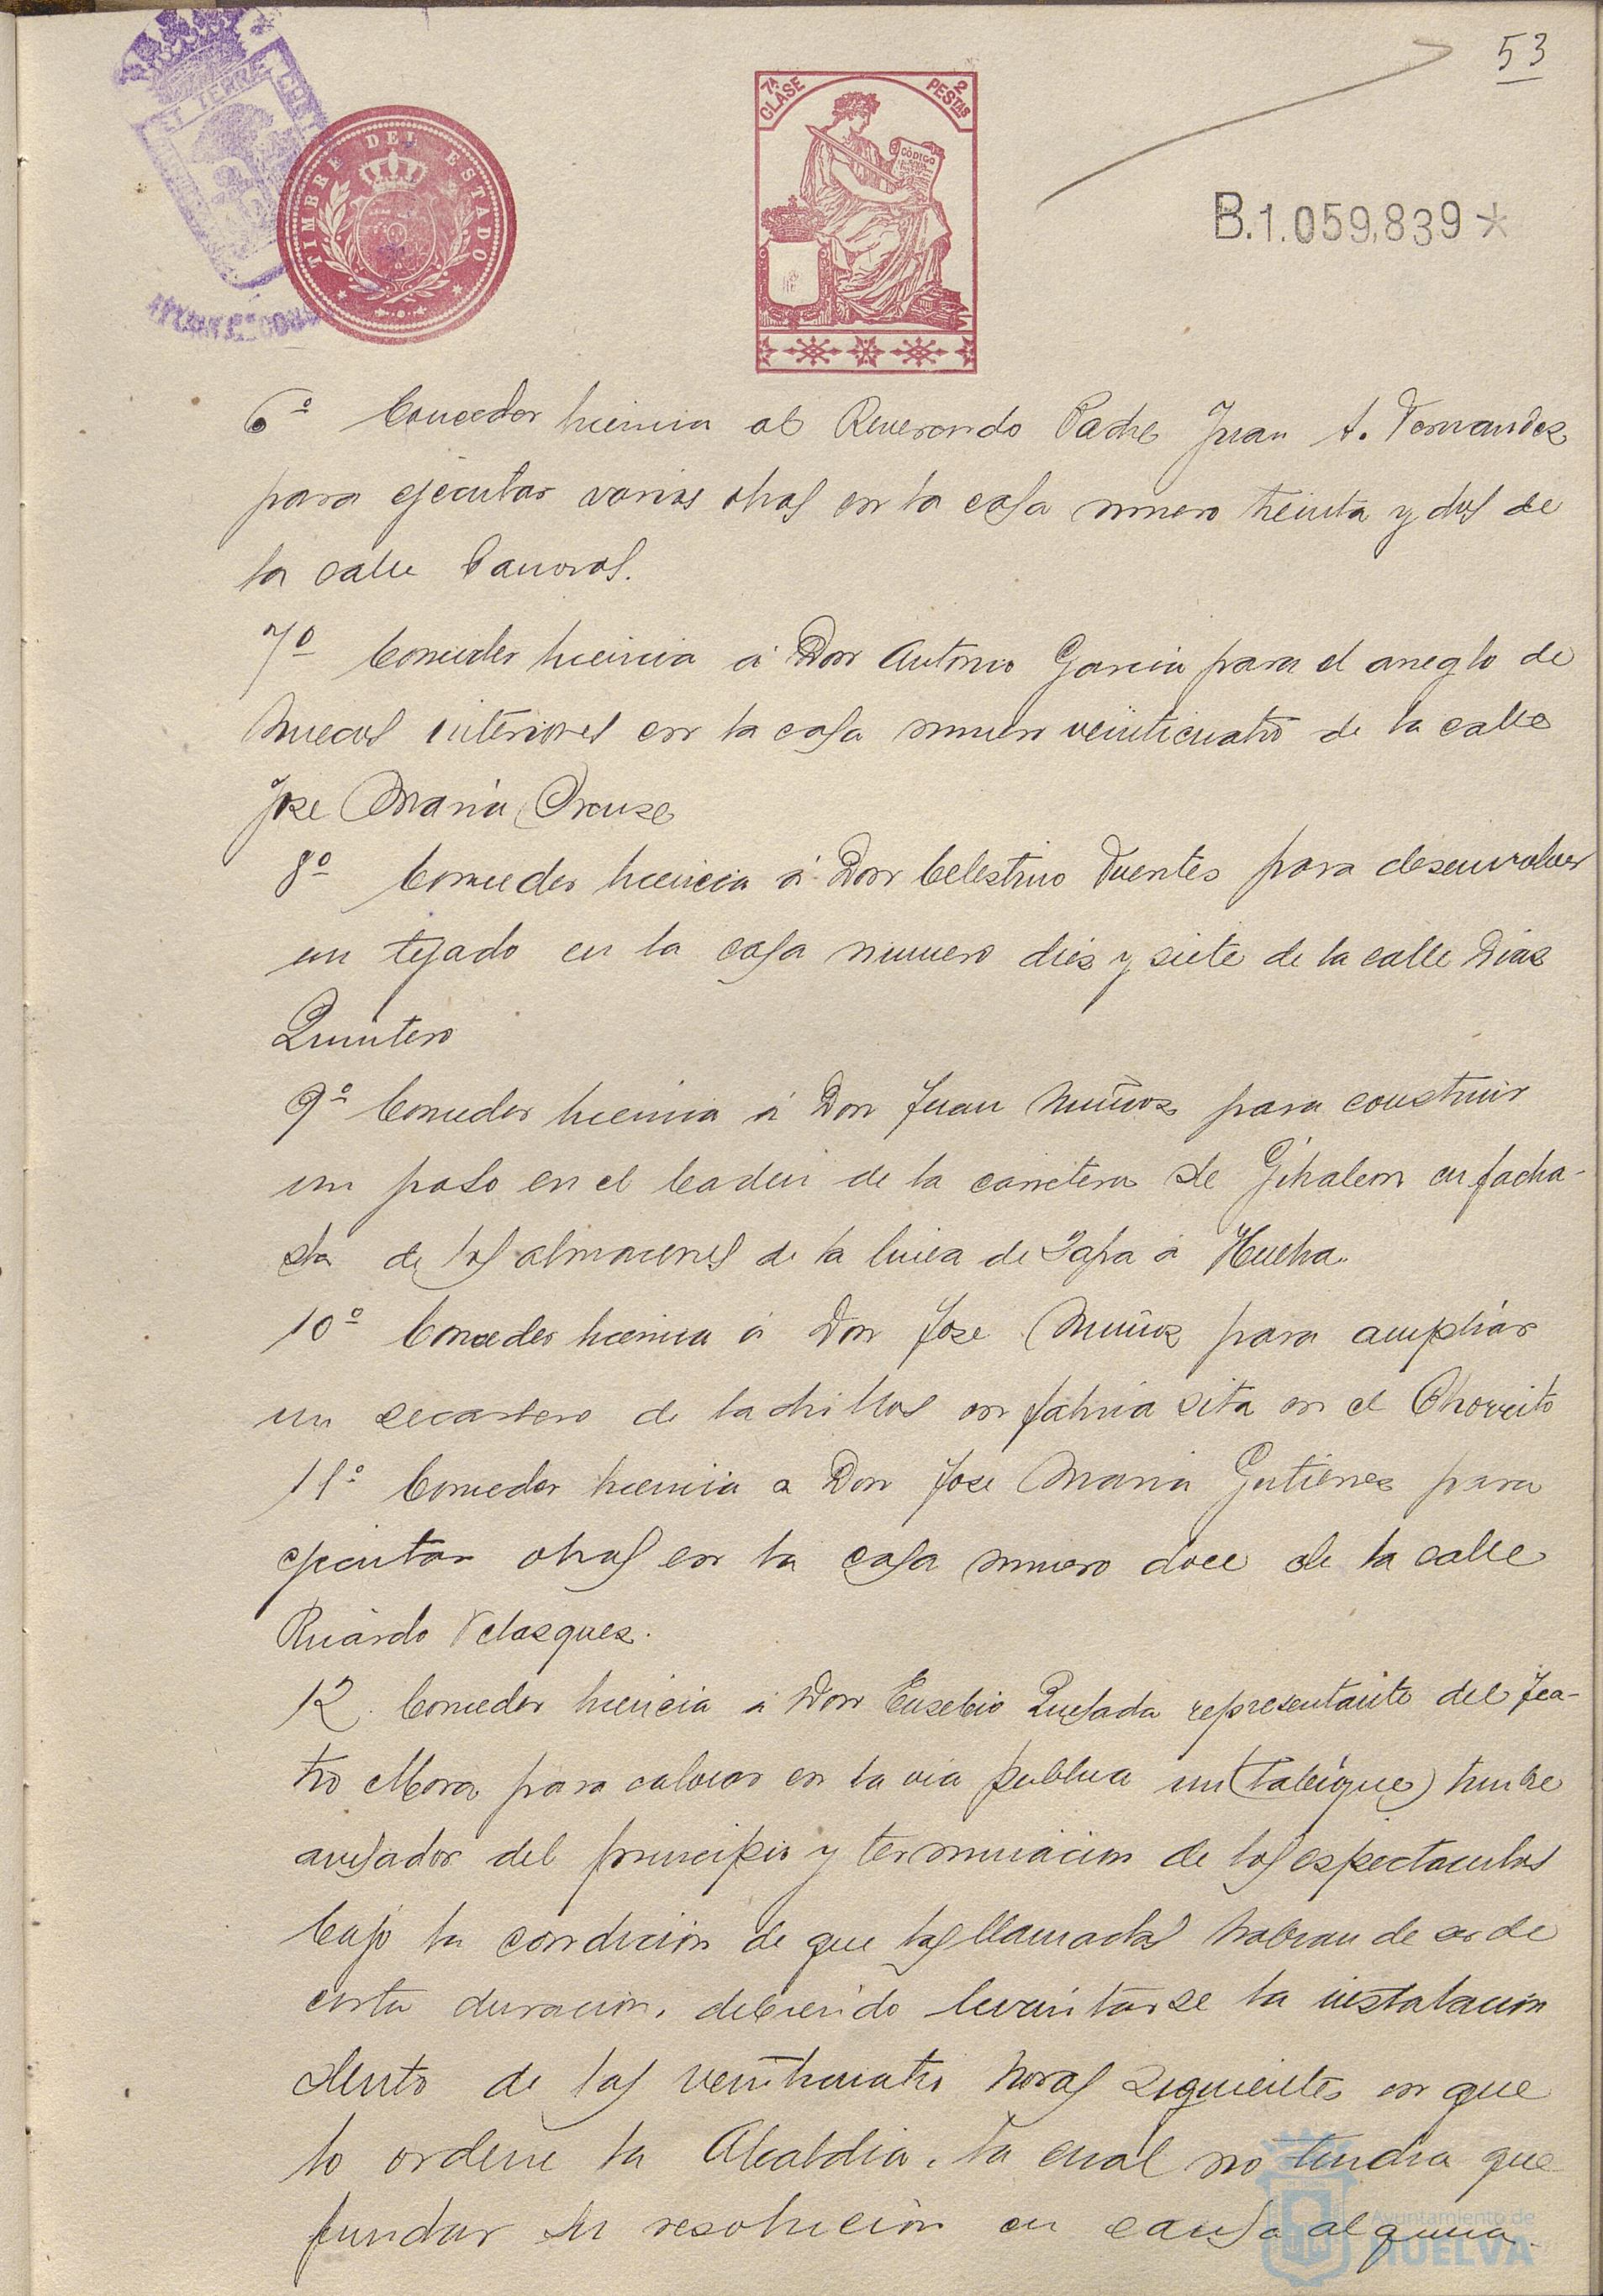 53
7ª CLASE
2 PESTAS
CÓDIGO
TIMBRE DEL ESTADO
B.1.059,839*
6º Conceder licencia al Reverendo Padre Juan A. Fernandez
para ejecutar varias obras en la casa numero treinta y dos de
la calle Palacios.
7º Conceder licencia á Don Antonio Garcia para el arreglo de
huecos interiores en la casa numero veinticuatro de la calle
Jose Maria Orense
8º Conceder licencia á Don Celestino Fuentes para desenvolver
un tejado en la casa numero diez y siete de la calle Diaz
Quintero
9º Conceder licencia á Don Juan Muñoz para construir
un paso en el de la carretera de Gibraleon en facha-
da de los almacenes de la linea de Zafra á Huelva.
10º Conceder licencia á Don Jose Muñoz para ampliar
un secadero de ladrillos en fabrica sita en el Chorrito
11º Conceder licencia a Don Jose Maria Gutierrez para
ejecutar obras en la casa numero doce de la calle
Ricardo Velazquez.
12. Conceder licencia á Don Eusebio Quesada representante del Tea-
tro Mora para colocar en la via publica un (tabique) timbre
avisador del principio y terminacion de los espectaculos
bajo la condicion de que las llamadas habran de ser de
corta duracion, debiendo levantarse la instalacion
dentro de las veinticuatro horas siguientes en que
lo ordene la Alcaldia, la cual no tendra que
fundar su resolucion en causa alguna.
Ayuntamiento de
HUELVA